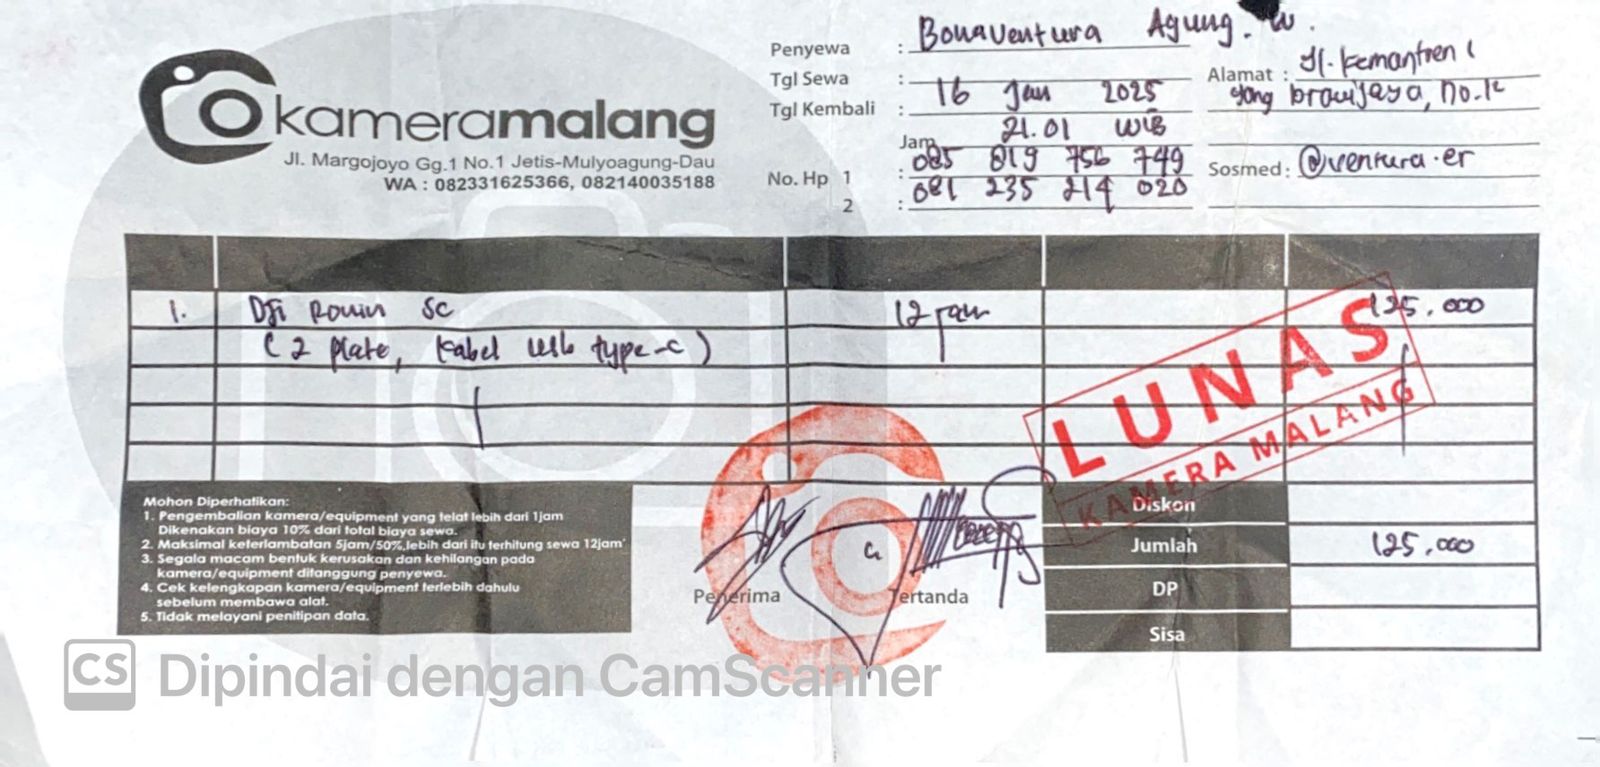 kameramalang
Jl. Margojoyo Gg.1 No.1 Jetis-Mulyoagung-Dau
WA : 082331625366, 082140035188
Penyewa : Bonaventura Agung. W.
Tgl Sewa :
Tgl Kembali : 16 Jan 2025
Jam 21.01 WIB
No. Hp 1 : 085 819 756 749
2 : 081 235 214 020
Alamat : Jl. Kemantren 1
gang brawijaya, no.1c
Sosmed : @ventura.er
1. Dji Ronin SC 12 jam 125.000
(2 plate, kabel usb type-c)
LUNAS
KAMERA MALANG
Mohon Diperhatikan:
1. Pengembalian kamera/equipment yang telat lebih dari 1jam
Dikenakan biaya 10% dari total biaya sewa.
2. Maksimal keterlambatan 5jam/50%,lebih dari itu terhitung sewa 12jam'
3. Segala macam bentuk kerusakan dan kehilangan pada
kamera/equipment ditanggung penyewa.
4. Cek kelengkapan kamera/equipment terlebih dahulu
sebelum membawa alat.
5. Tidak melayani penitipan data.
Penerima
Tertanda
Diskon
Jumlah 125.000
DP
Sisa
CS Dipindai dengan CamScanner